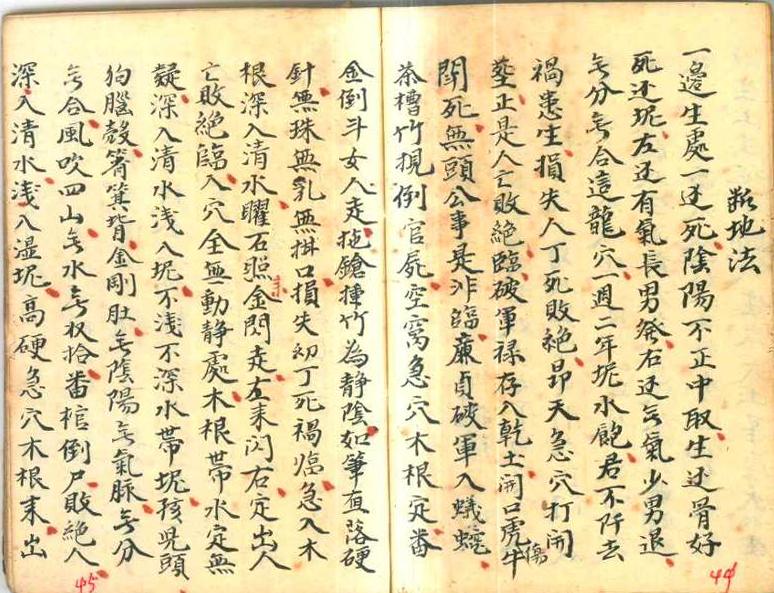 斷地法
一邊生處一边死陰陽不正中取生边骨好
死还坭左边有氣長男發右边无氣少男退
无分无合這龍穴一週二年坭水飽君不阡去
禍患生損失人丁死敗絕昂天急穴打開
塟正是人亡敗絕臨破軍禄存入乾土開口虎牛
傷
関死無頭公事是非臨廉貞破軍入蟻
茶槽竹梘倒官屍空窩急穴木根定番
44
金倒斗女人走拖鎗撞竹為静陰如筆直落硬
針無珠無乳無掛口損失幼丁死禍臨急入木
根深入清水曜石照金門走左来閃右定出人
亡敗絕臨入穴全無動静處木根帶水定無
疑深入清水浅入坭不浅不深水帶坭孩児頭
狗腦殼箸箕背金剛肚无陰陽无氣脉无分
无合風吹四山无水无収拾番棺倒尸敗絕人
深入清水浅入湿坭高硬急穴木根来出
45